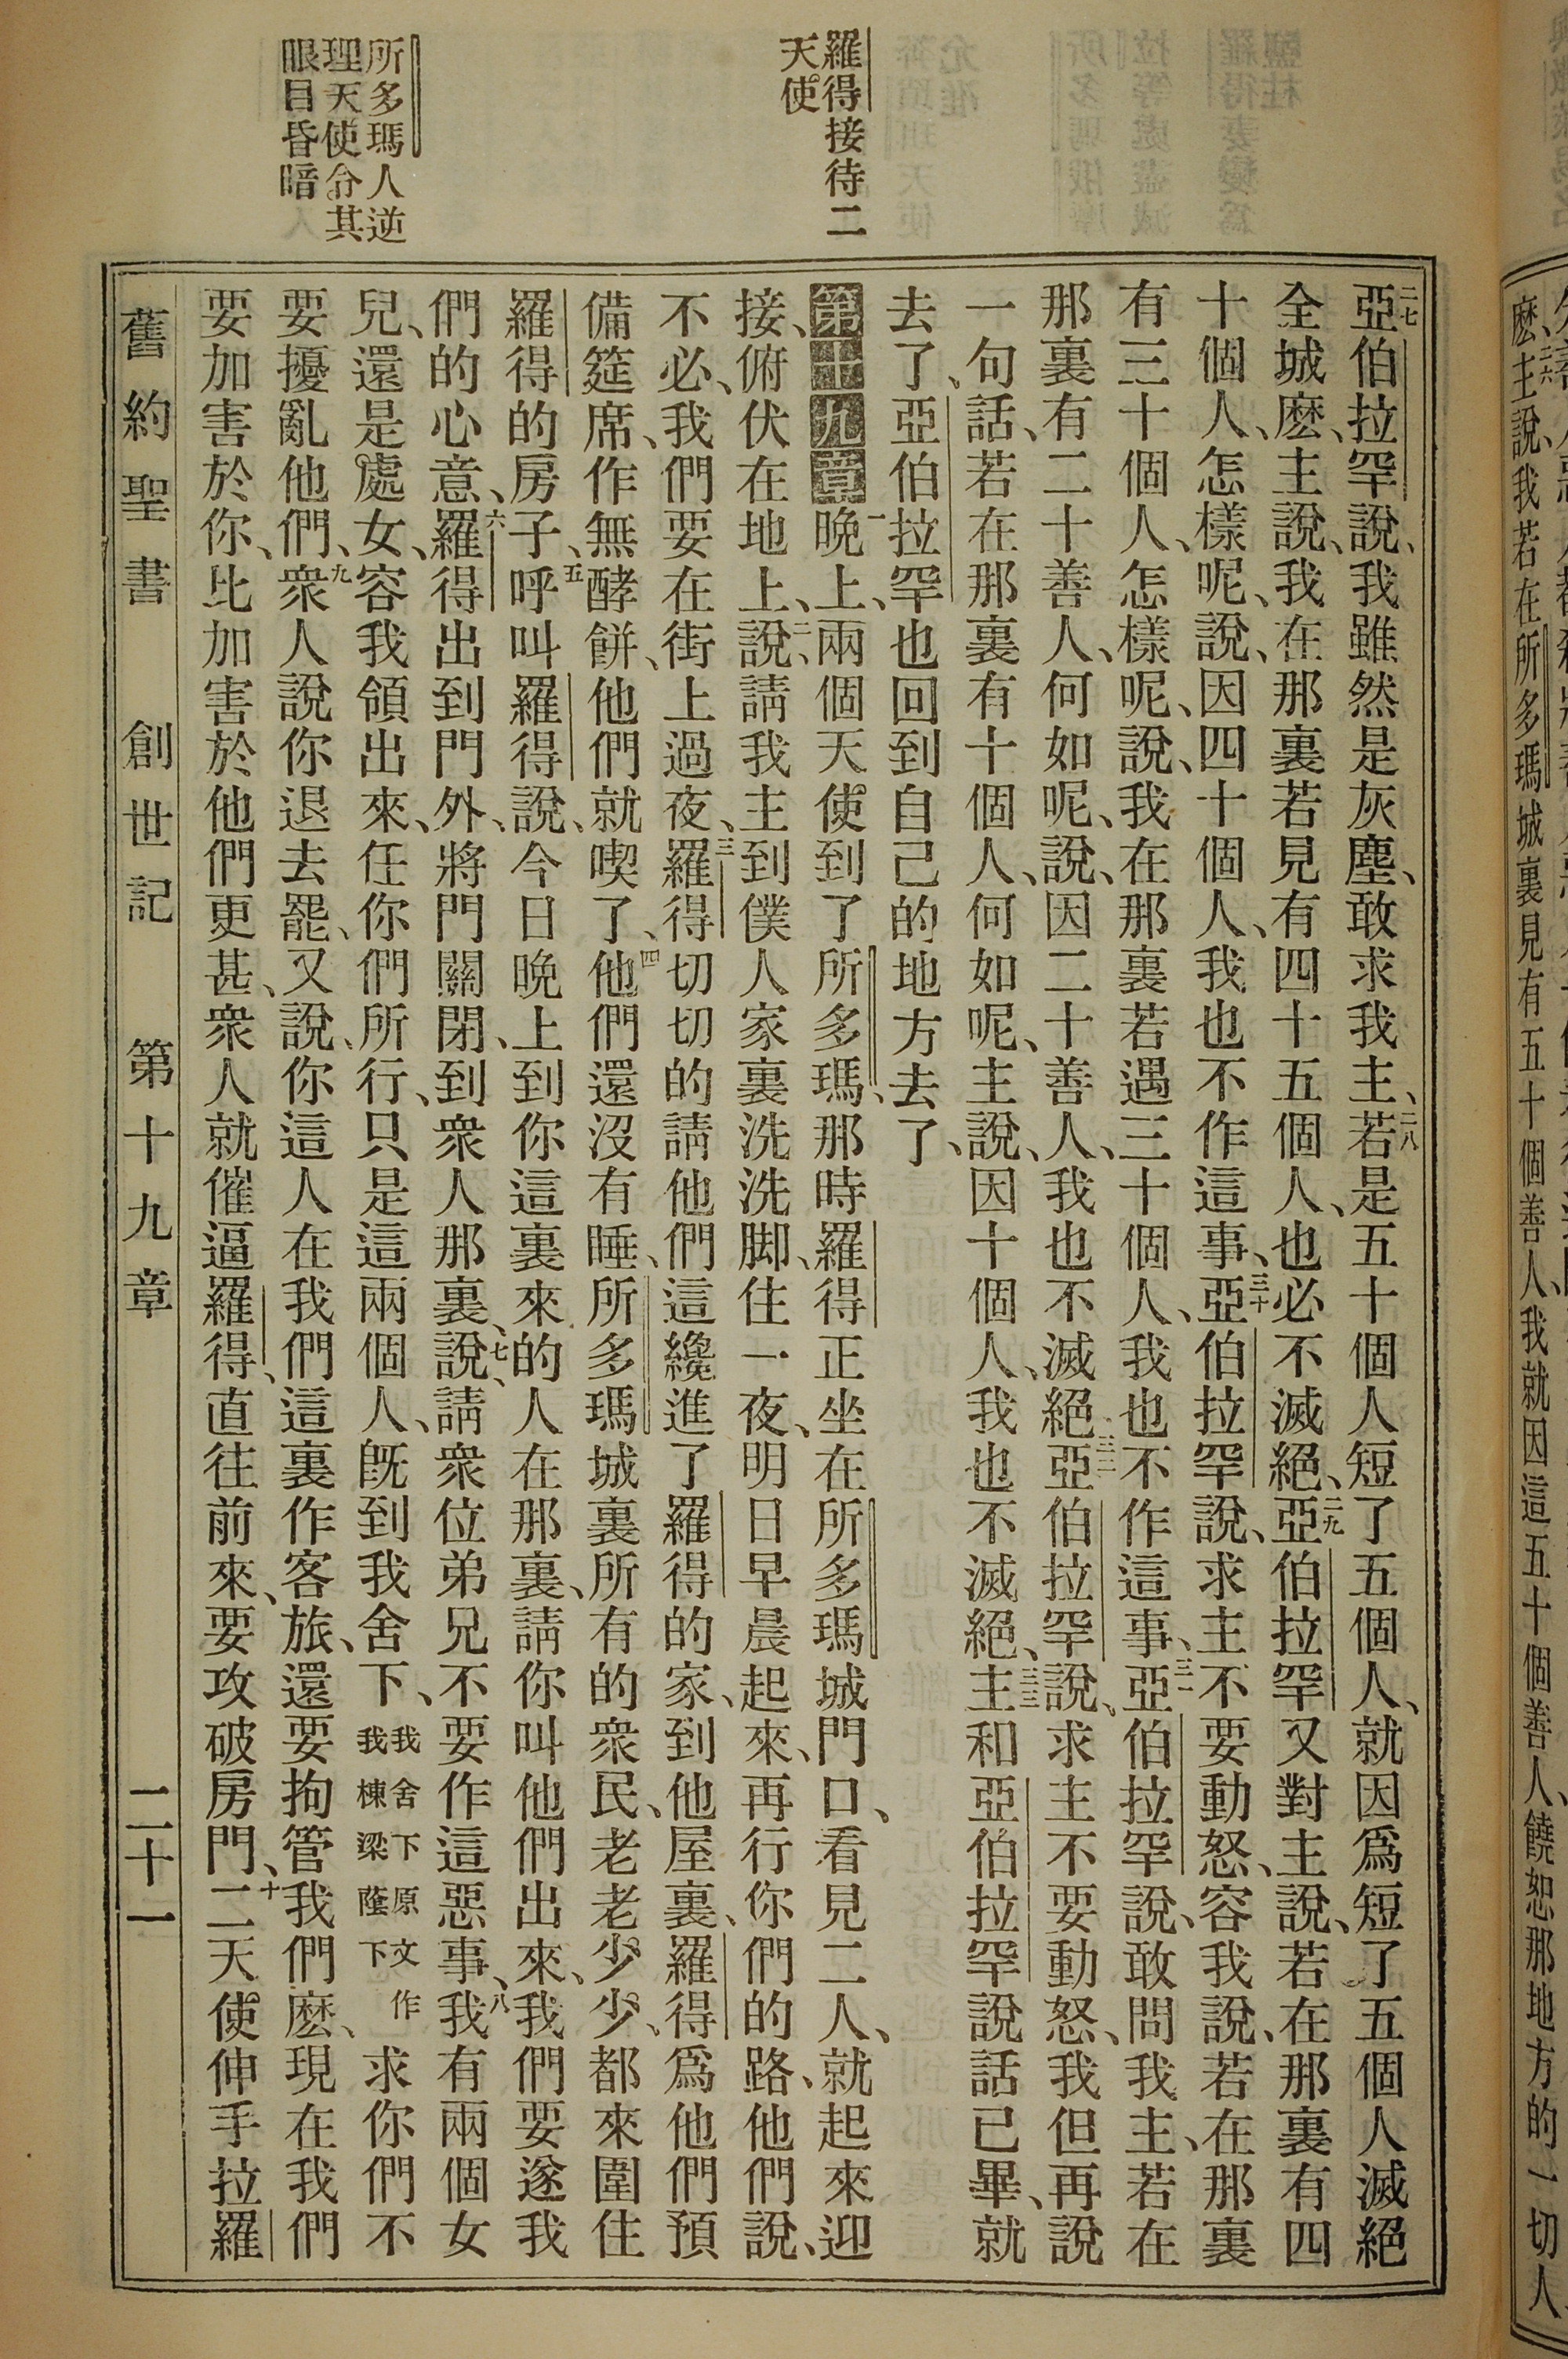 羅得接待二
天使
所多瑪人逆
理天使令其
眼目昏暗
二七亞伯拉罕說、我雖然是灰塵、敢求我主、二八若是五十個人短了五個人、就因爲短了五個人滅絕
全城麽、主說、我在那裏若見有四十五個人、也必不滅絕、二九亞伯拉罕又對主說、若在那裏有四
十個人、怎樣呢、說、因四十個人、我也不作這事、三十亞伯拉罕說、求主不要動怒、容我說、若在那裏
有三十個人、怎樣呢、說、我在那裏若遇三十個人、我也不作這事、三一亞伯拉罕說、敢問我主、若在
那裏有二十善人、何如呢、說、因二十善人、我也不滅絕、三二亞伯拉罕說、求主不要動怒、我但再說
一句話、若在那裏有十個人、何如呢、主說、因十個人、我也不滅絕、三三主和亞伯拉罕說話已畢、就
去了、亞伯拉罕也回到自己的地方去了、
第十九章 一晚上、兩個天使到了所多瑪、那時羅得正坐在所多瑪城門口、看見二人、就起來迎
接、俯伏在地上、二說、請我主到僕人家裏洗洗脚、住一夜、明日早晨起來、再行你們的路、他們說、
不必、我們要在街上過夜、三羅得切切的請他們、這纔進了羅得的家、到他屋裏、羅得爲他們預
備筵席、作無酵餅、他們就喫了、四他們還沒有睡、所多瑪城裏所有的衆民、老老少少、都來圍住
羅得的房子、五呼叫羅得說、今日晚上到你這裏來的人在那裏、請你叫他們出來、我們要遂我
們的心意、六羅得出到門外、將門關閉、到衆人那裏、七說、請衆位弟兄不要作這惡事、八我有兩個女
兒、還是處女、容我領出來、任你們所行、只是這兩個人、旣到我舍下、我舍下原文作我棟梁蔭下求你們不
要擾亂他們、九衆人說你退去罷、又說、你這人在我們這裏作客旅、還要拘管我們麽、現在我們
要加害於你、比加害於他們更甚、衆人就催逼羅得、直往前來、要攻破房門、十二天使伸手拉羅
舊約聖書 創世記 第十九章 二十一
麽、主說、我若在所多瑪城裏見有五十個善人、我就因這五十個善人、饒恕那地方的一切人、